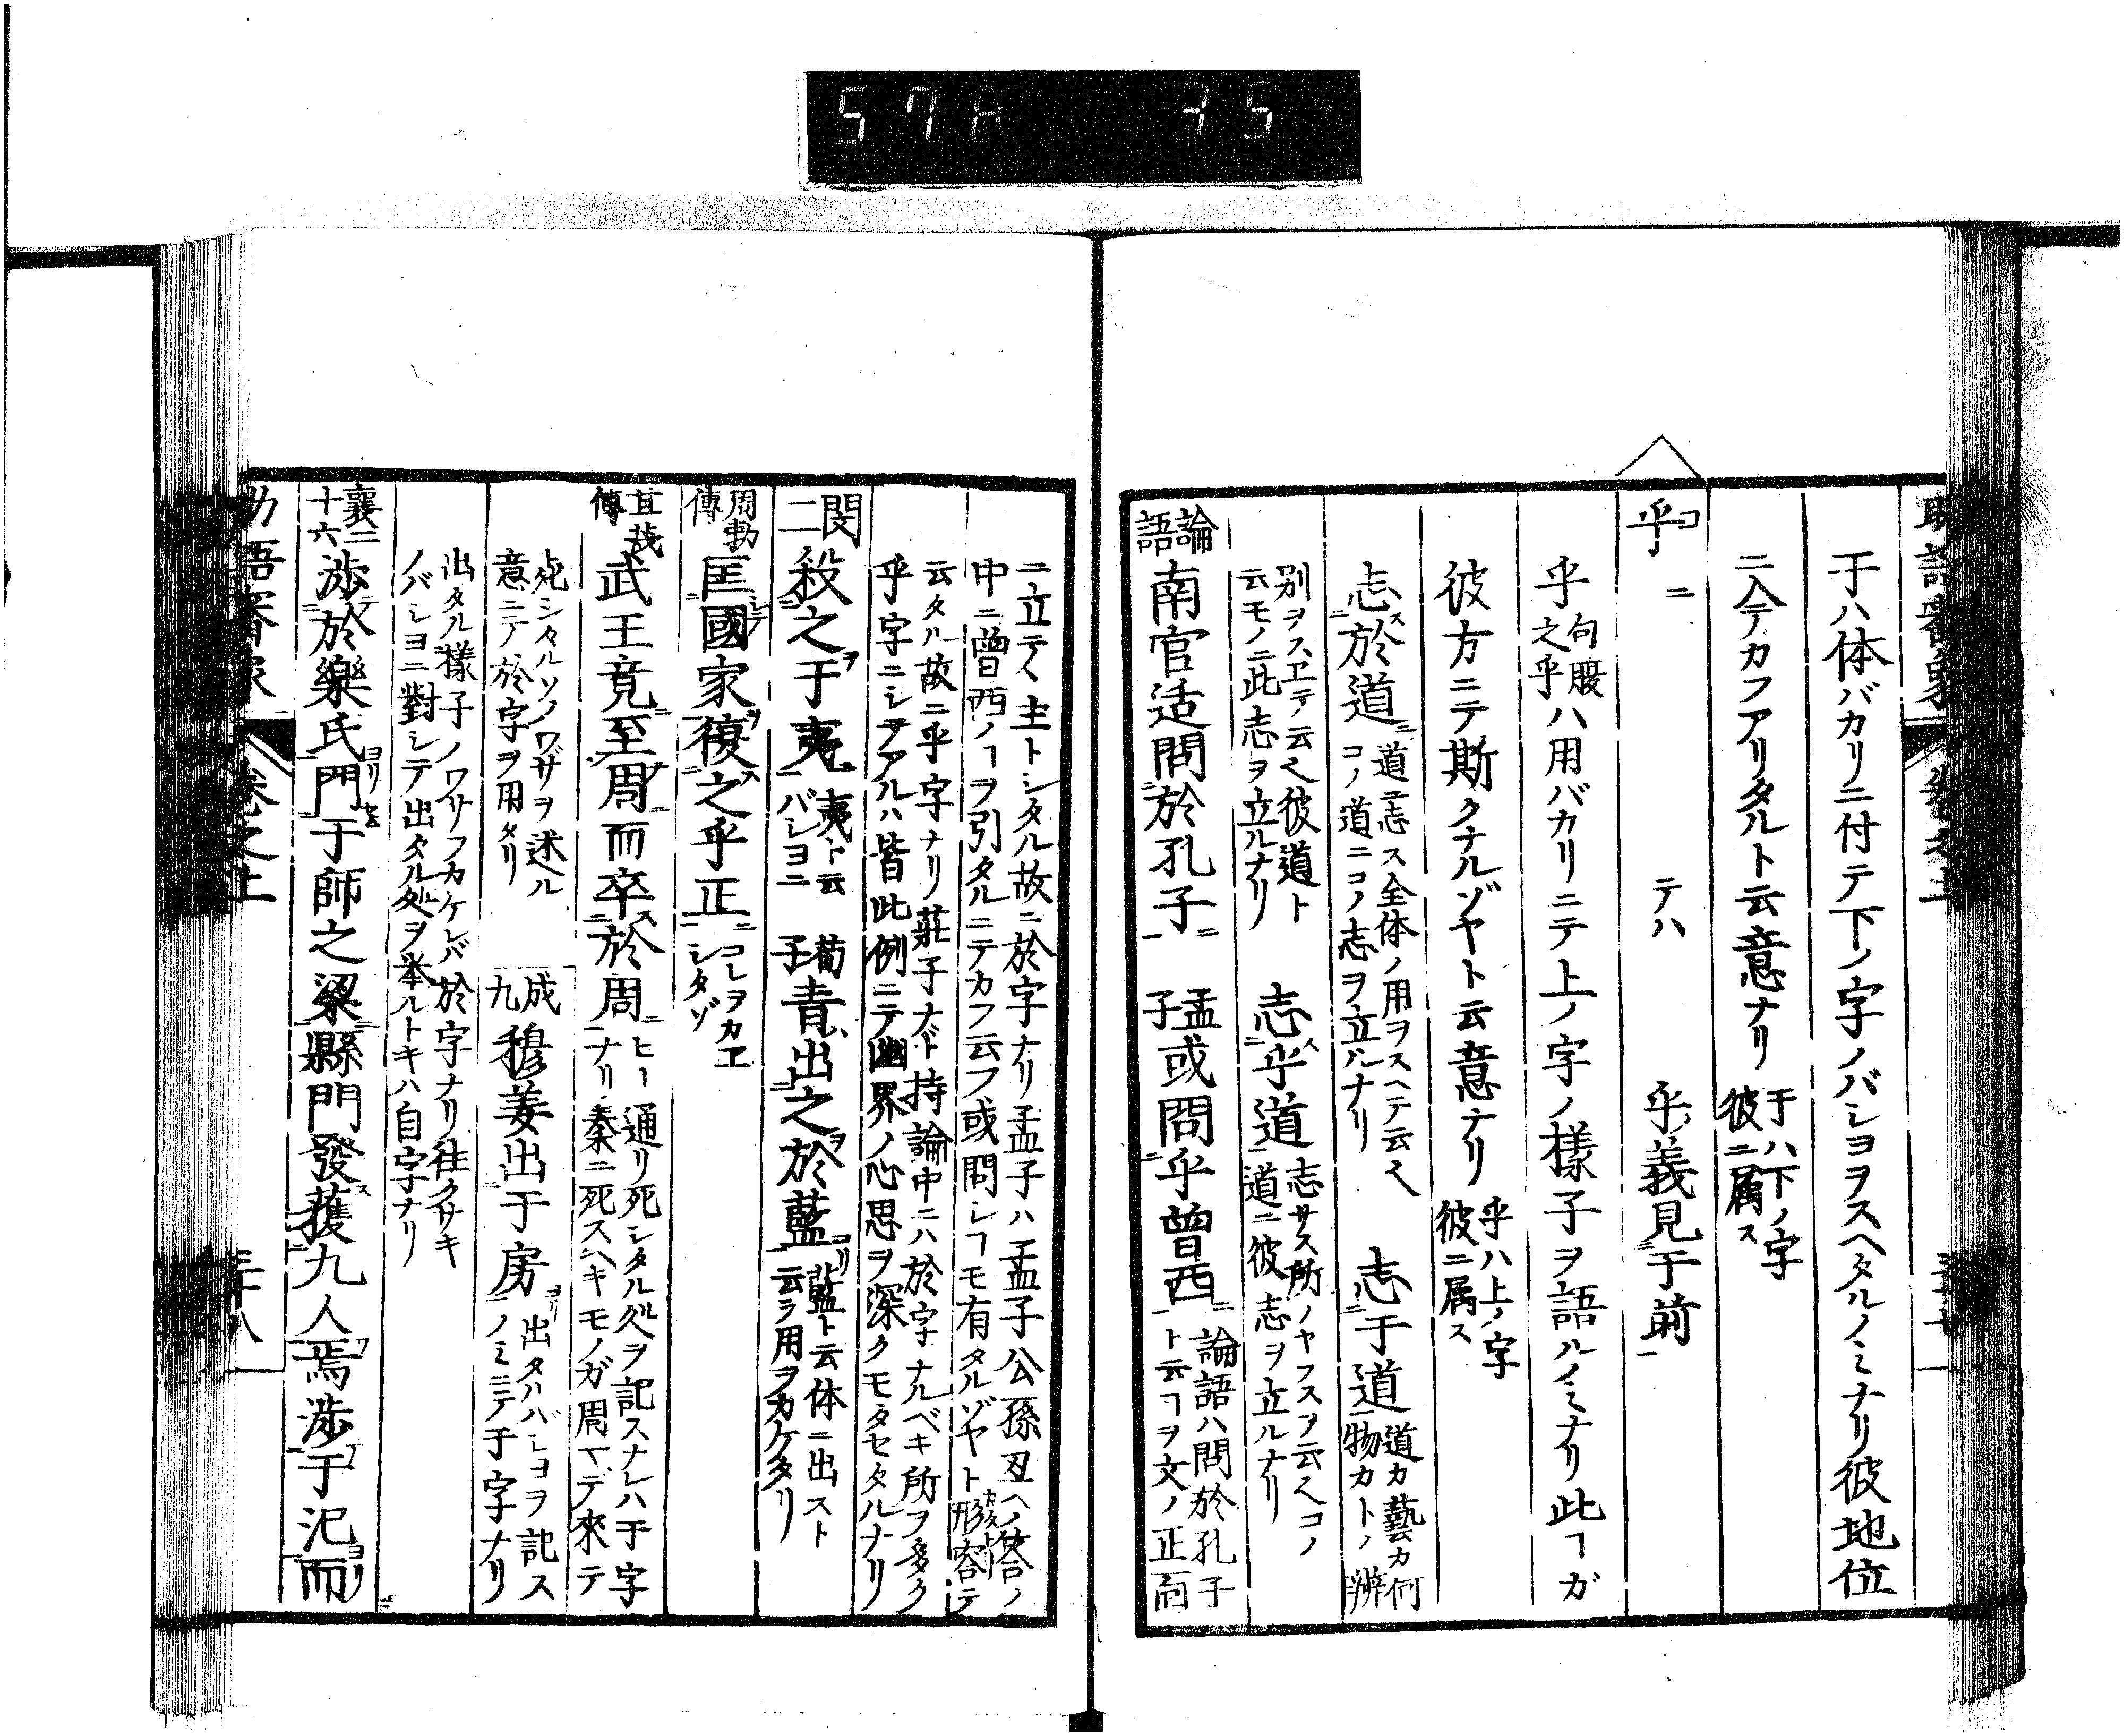 于ハ体バカリニ付テ下ノ字ノバシヨヲスヘタルノミナリ彼地位
ニ入テカフアリタルト云意ナリ 于ハ下ノ字
彼ニ属ス
乎 コ ニ テハ 乎ノ義見于前
乎 句腰
之乎 ハ用バカリニテ上ノ字ノ様子ヲ語ルノミナリ此ヿガ
彼方ニテ斯クナルゾヤト云意ナリ 乎ハ上ノ字
彼ニ属ス
志於道 道ニ志ス全体ノ用ヲスヘテ云ヘ
コノ道ニコノ志ヲ立ルナリ 志于道 道カ藝カ何
物カトノ辨
別ヲスヱテノ云ヘ彼道ト
云モノニ此志ヲ立ルナリ 志乎道 志サス所ノヤフスヲ云ヘコノ
道ニ彼志ヲ立ルナリ
論語 南宮适問於孔子 孟子 或問乎曽西 論語ハ問於孔子
ト云ヿヲ文ノ正面
ニ立テヽ主トシタル故ニ於字ナリ孟子ハ孟子公孫丑ヘノ答ノ
中ニ曽西ノヿヲ引タルニテカフ云フ或問シヿモ有タルゾヤト形容テ
云タル故ニ乎字ナリ莊子ナド持論中ニハ於字ナルベキ所ヲ多ク
乎字ニシテアルハ皆此例ニテ幽界ノ心思ヲ深クモタセタルナリ
閔二 殺之于夷 夷ト云
バシヨニ 荀子 青出之於藍 藍ト云体ニ出スト
云ヲ用ヲカケタリ
周勃傳 匡國家復之乎正 コレヲカヱ
シタゾ
甘茂傳 武王竟至周而卒於周 ヒー通リ死シタル処ヲ記スナレハ于字
ナリ秦ニ死スヘキモノガ周マデ來テ
死シタルソノワザヲ述ル
意ニテ於字ヲ用タリ 成九 穆姜出于房 出タルバシヨヲ記ス
ノミニテ于字ナリ
出タル様子ノワサフカケレバ於字ナリ往クサキ
ノバシヨニ對シテ出タル処ヲ挙ルトキハ自字ナリ
襄二十六 渉於樂氏門于師之梁縣門發獲九人焉渉于汜而